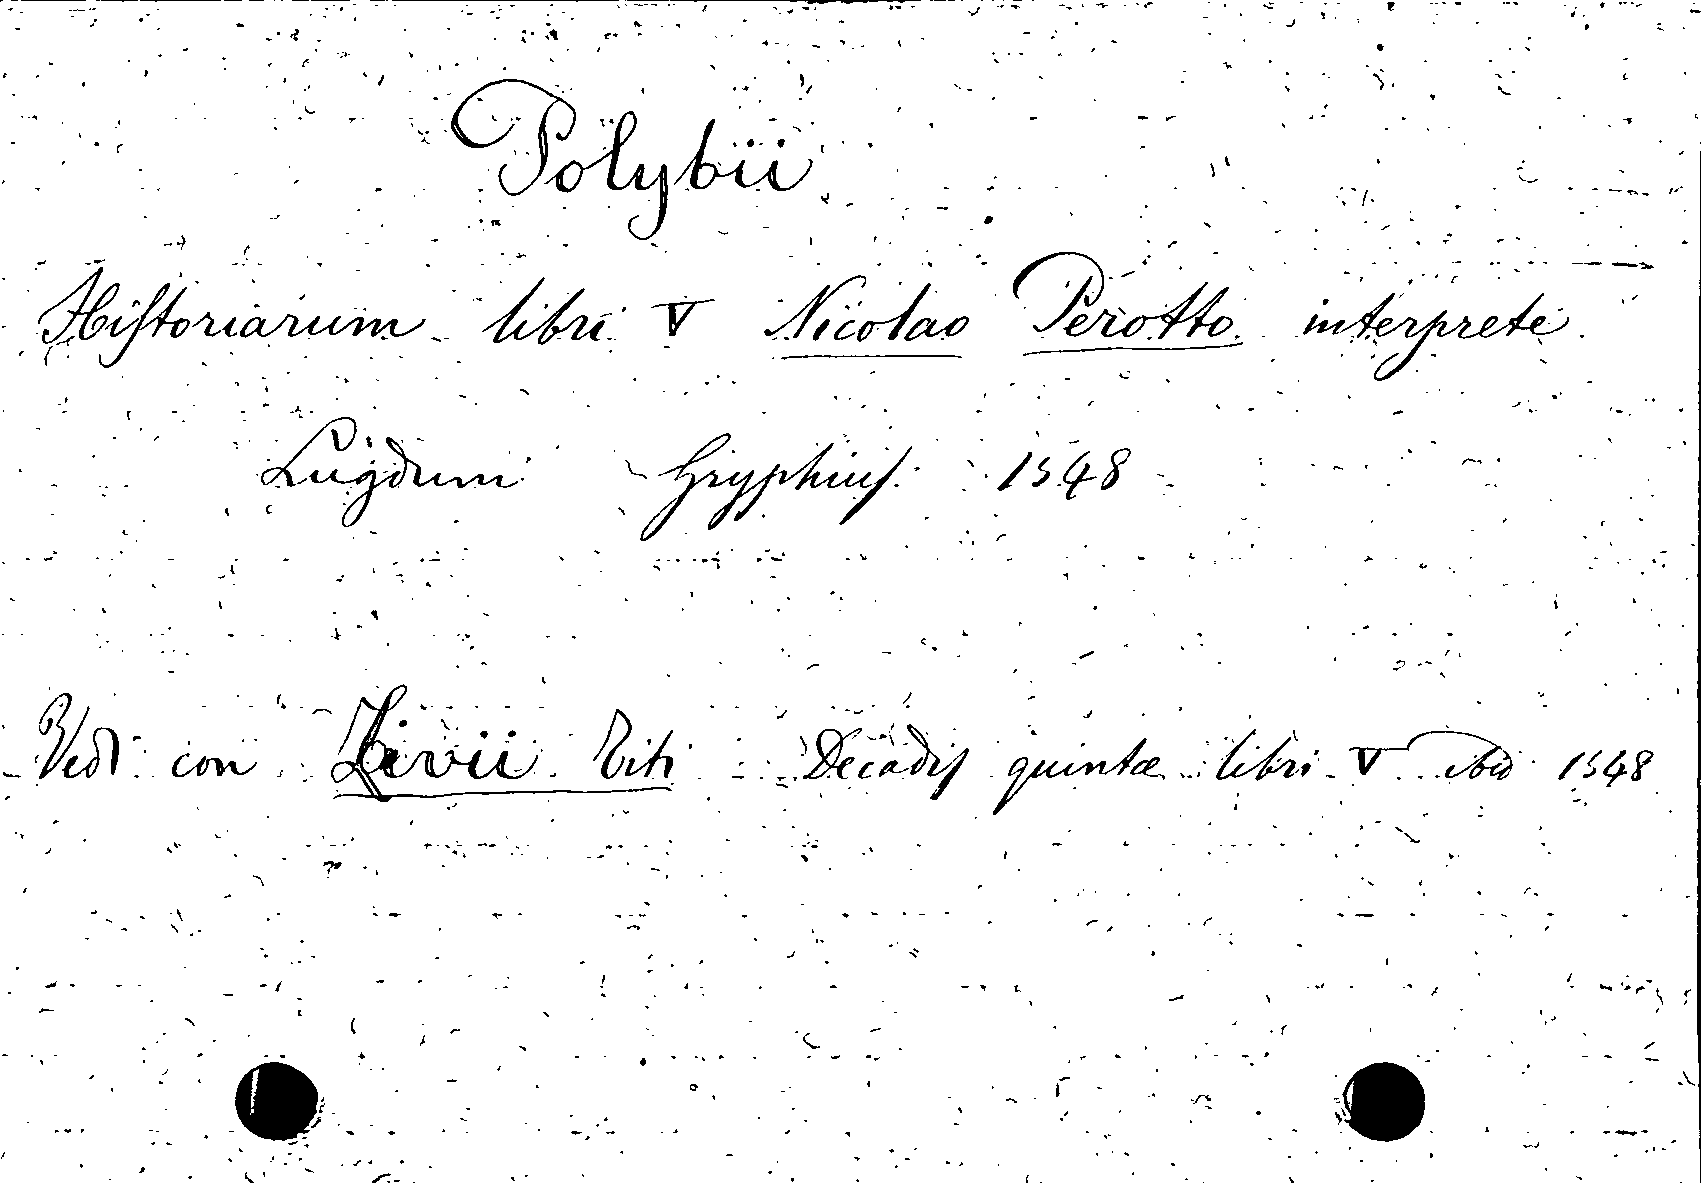 Polybii
Hiſtoriarum libri V Nicolao Perotto interprete
Lugduni Gryphiuſ 1548
Vedi con Livii Titi Decadiſ quintæ libri V ibid 1548